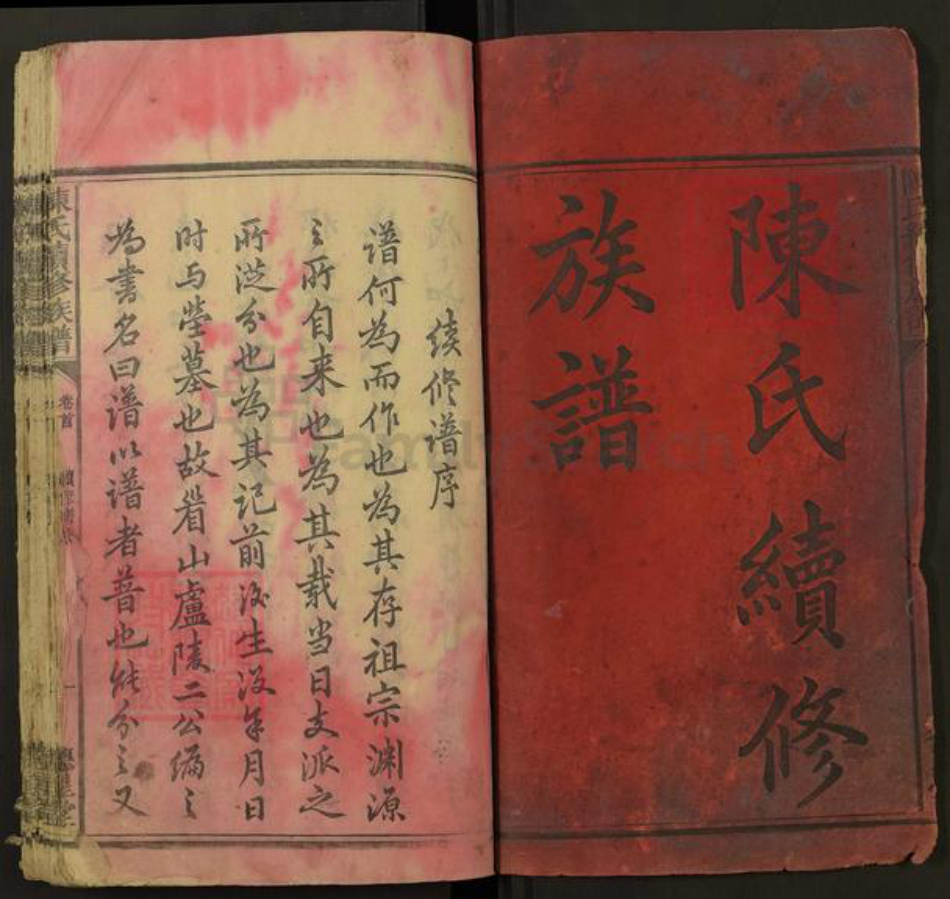 陳氏續修
族譜
续修譜序
譜何為而作也為其存祖宗渊源
之所自来也為其载当日支派之
所从分也為其记前後生没年月日
时与茔墓也故眉山盧陵二公編之
為書名曰譜以譜者普也能分之又
陳氏續修族譜
卷首